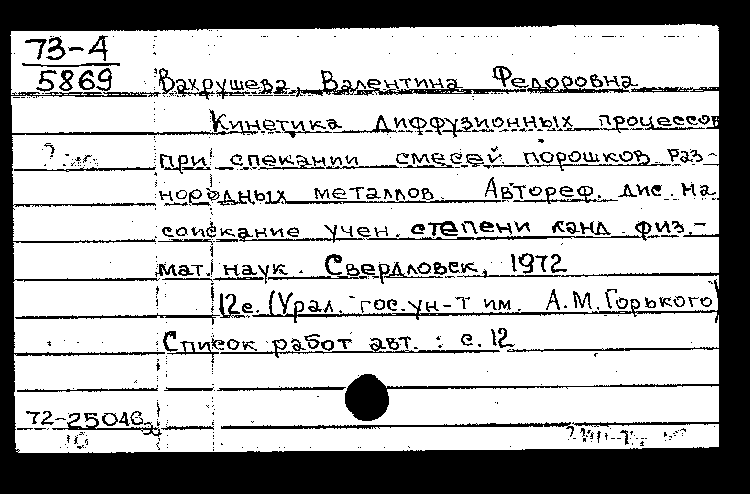 73-4
5869
Вахрушева, Валентина Федоровна
Кинетика диффузионных процессов
при спекании смесей порошков раз-
нородных металлов. Автореф. дис. на
соискание учен. степени канд. физ.-
мат. наук. Свердловск, 1972
12с. (Урал. гос. ун-т им. А.М.Горького)
Список работ авт. : с. 12
72-25046